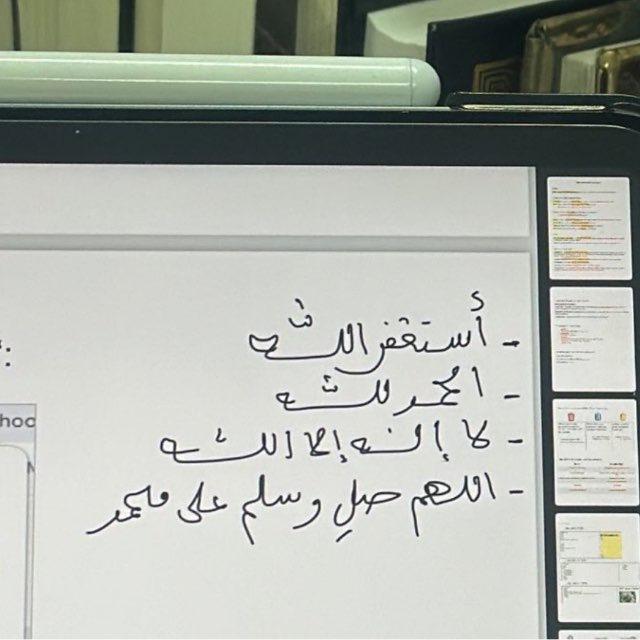 - أستغفر الله
- الحمد لله
- لا إله إلا الله
- اللهم صلِ وسلم على محمد
hoc